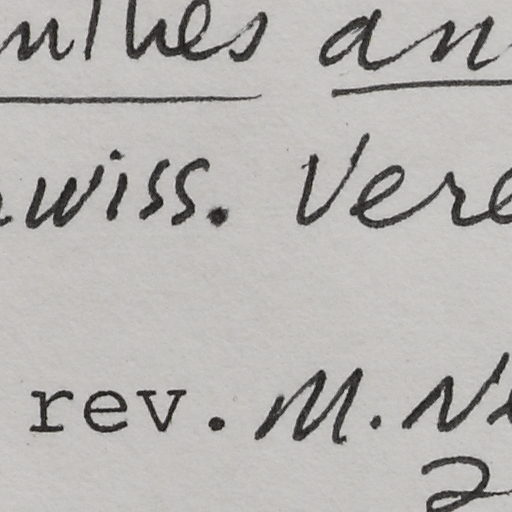 nthes an
wiss. Vere
rev. M. Ne
2